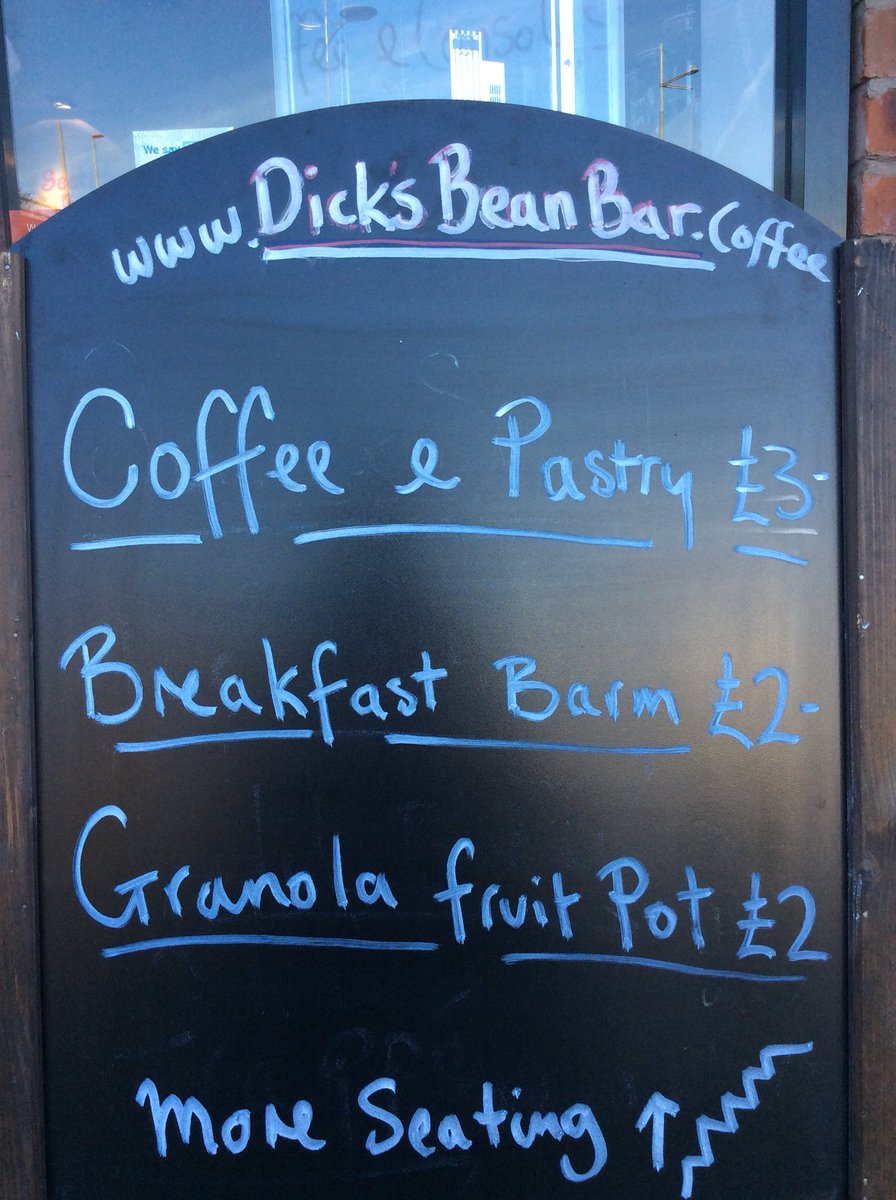 We say
www.Dick's Bean Bar.Coffee
Coffee e Pastry £3-
Breakfast Barm £2-
Granola fruit Pot £2
More Seating ↑